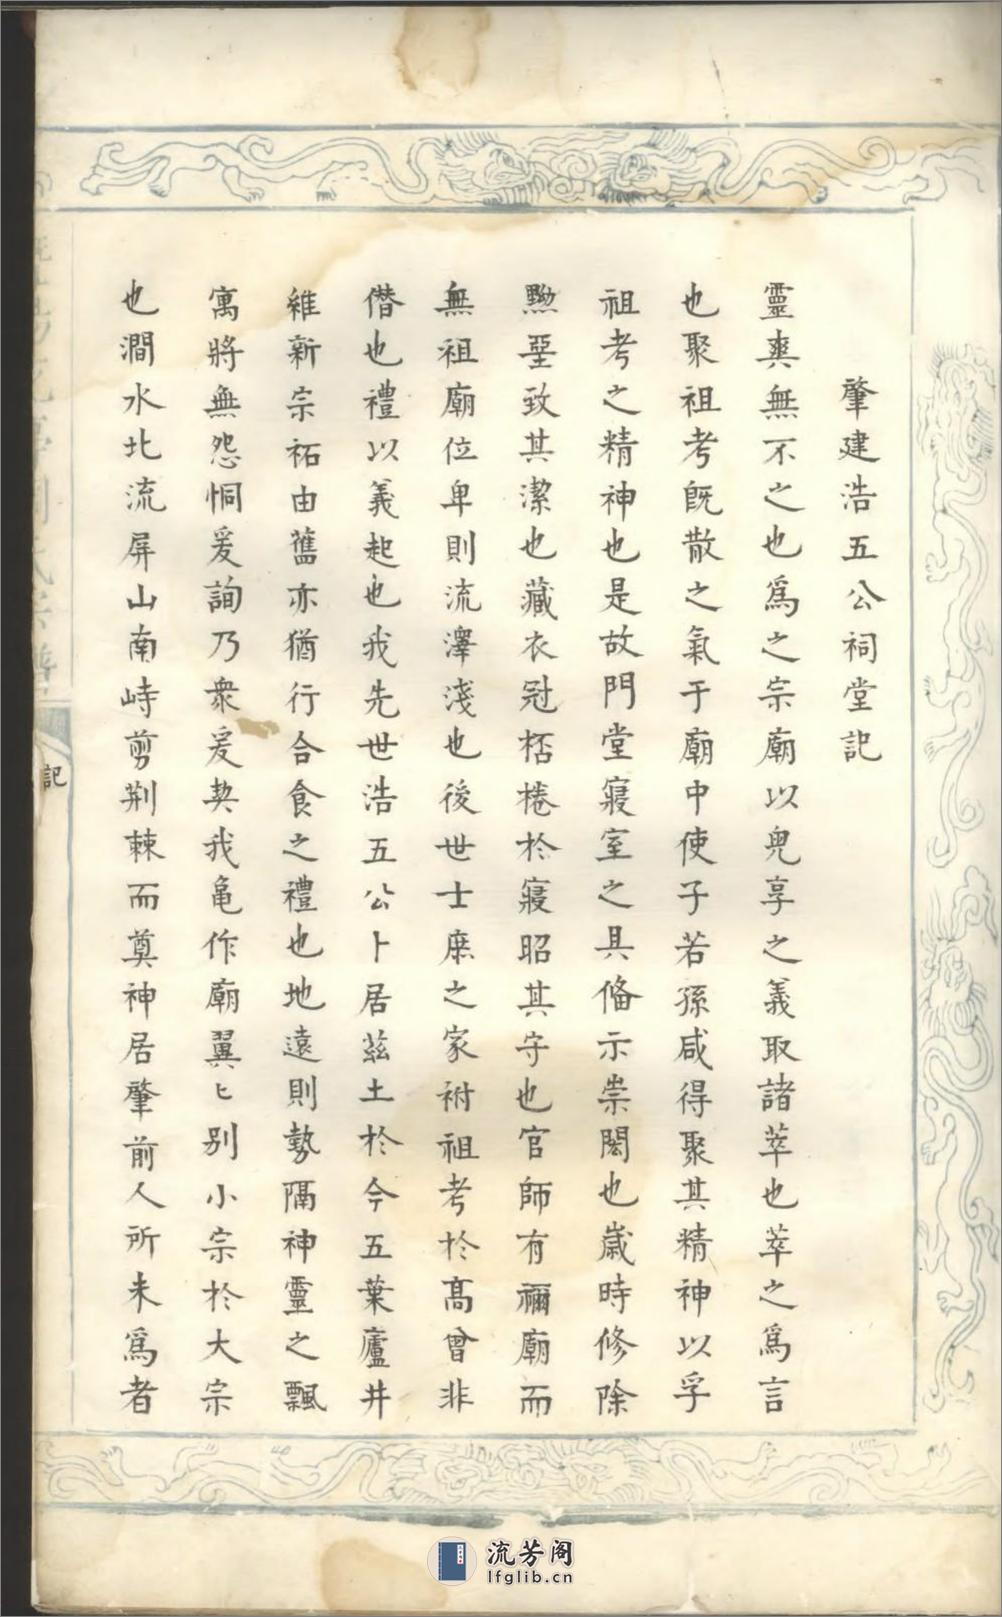 肇建浩五公祠堂記
靈爽無不之也為之宗廟以鬼享之義取諸萃也萃之為言
也聚祖考既散之氣于廟中使子若孫咸得聚其精神以孚
祖考之精神也是故門堂寢室之具俻示崇閎也歲時修除
黝堊致其潔也藏衣冠桮棬於寢昭其守也官師有禰廟而
無祖廟位卑則流澤淺也後世士庶之家祔祖考於高曾非
僭也禮以義起也我先世浩五公卜居茲土於今五葉廬井
維新宗祏由舊亦猶行合食之禮也地遠則勢隔神靈之飄
寓將無怨恫爰詢乃衆爰契我龜作廟翼〻別小宗於大宗
也澗水北流屏山南峙剪荆棘而奠神居肇前人所未為者
記
流芳阁
lfglib.cn